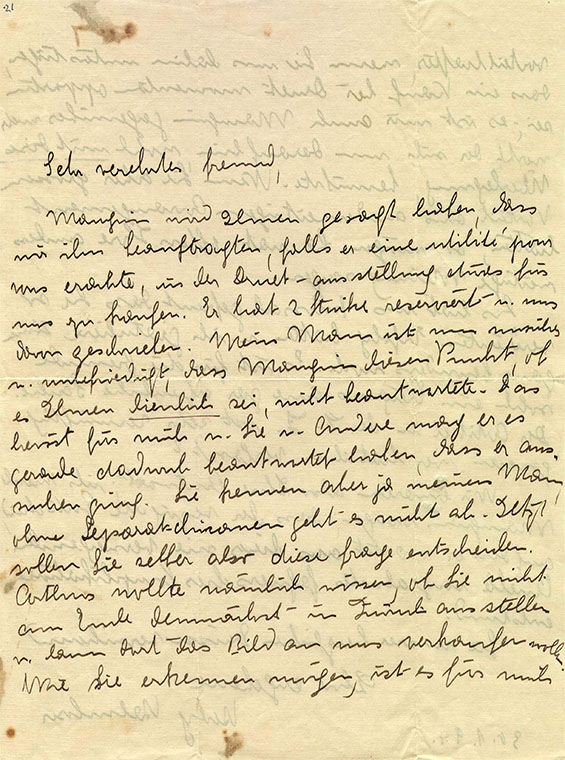 21
Sehr verehrter Freund,
Manguin wird Ihnen gesagt haben, dass
wir ihn beauftragten, falls er eine utilité pour
vous erachte, in der Druet-ausstellung etwas für
uns zu kaufen. Er hat 2 Stücke reserviert u. uns
davon geschrieben. Mein Mann ist nun unsicher
u. unbefriedigt, dass Manguin diesen Punkt, ob
es Ihnen dienlich sei, nicht beantwortete. Das
heisst für mich u. Sie u. Andere mag er es
gerade dadurch beantwortet haben, dass er aus-
suchen ging. Sie kennen aber ja meinen Mann,
ohne Separatchicanen geht es nicht ab. Jetzt
sollen Sie selber also diese Frage entscheiden.
wollte nämlich wissen, ob Sie nicht
am Ende demnächst in Zürich ausstellen
u. dann dort das Bild an uns verkaufen wollen.
Wie Sie erkennen mögen, ist es für mich